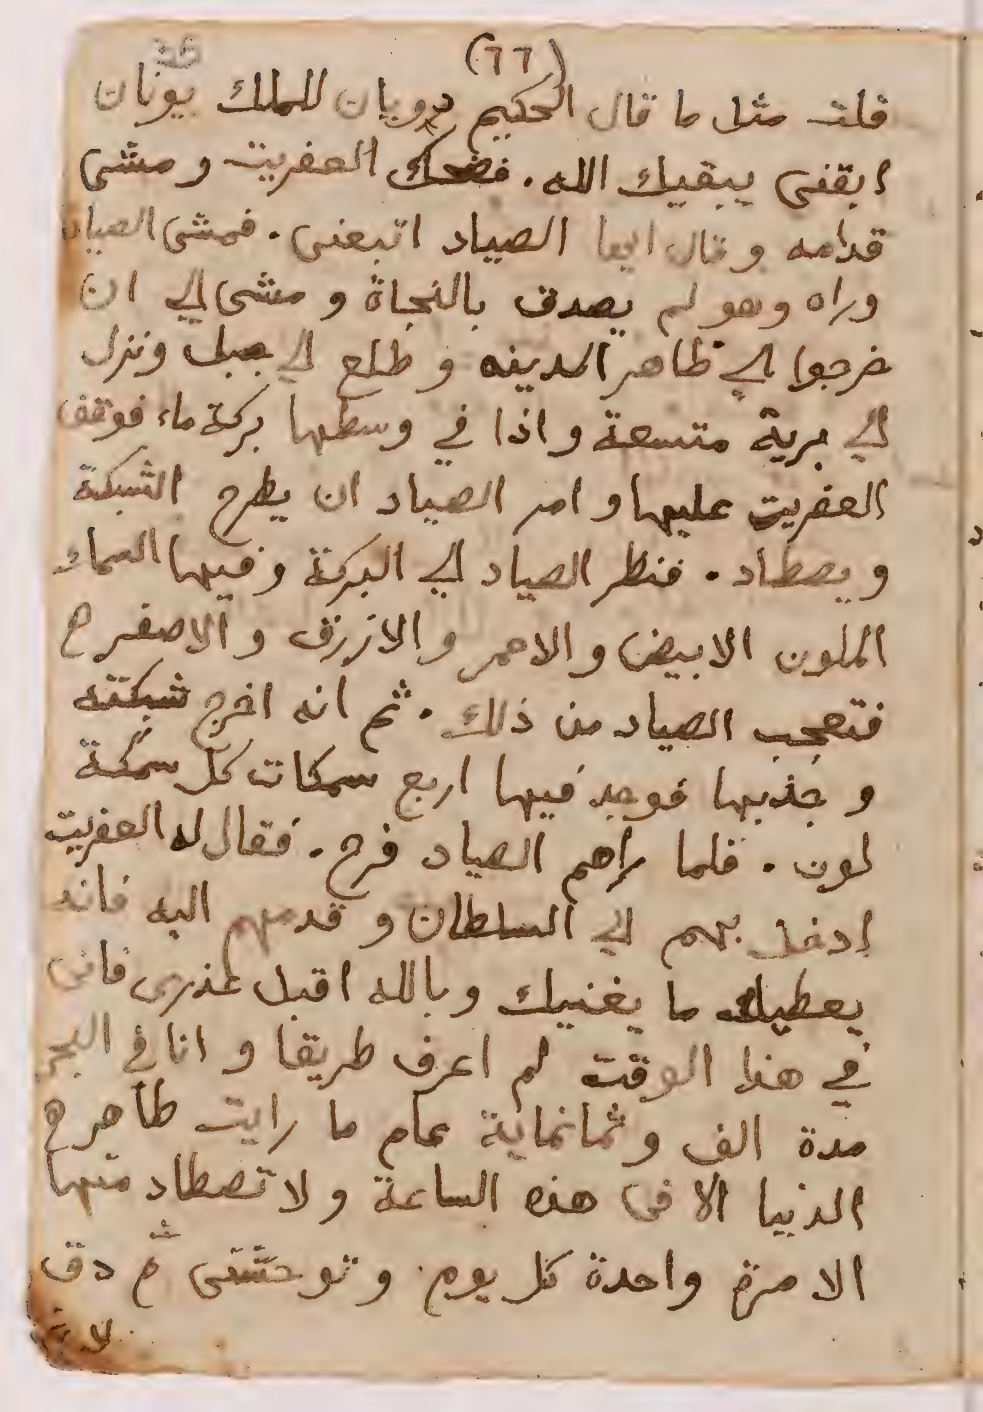 (٦٦)
قلت مثل ما قال الحكيم دوبان للملك يونان
ابقني يبقيك الله . فضحك العفريت و مشى
قدامه و قال ايها الصياد اتبعني . فمشى الصياد
وراه وهو لم يصدق بالنجاة و مشى الي ان
خرجوا الي ظاهر المدينه و طلع الي جبل ونزل
الي برية متسعة و اذا في وسطها بركة ماء فوقف
العفريت عليها و امر الصياد ان يطرح الشبكة
و يصطاد . فنظر الصياد الي البركة و فيها السمك
الملون الابيض و الاحمر و الازرق و الاصفر
فتعجب الصياد من ذلك . ثم انه اخرج شبكته
و جذبها فوجد فيها اربع سمكات كل سمكة
لون . فلما راهم الصياد فرح . فقال له العفريت
ادخل بهم الي السلطان و قدمهم اليه فانه
يعطيك ما يغنيك و بالله اقبل عذري فاني
في هذا الوقت لم اعرف طريقا و انا في البحر
مدة الف و ثمانماية عام ما رايت ظاهر
الدنيا الا في هذه الساعة و لا تصطاد منها
الا مرة واحدة كل يوم . و توحشتني ثم دق